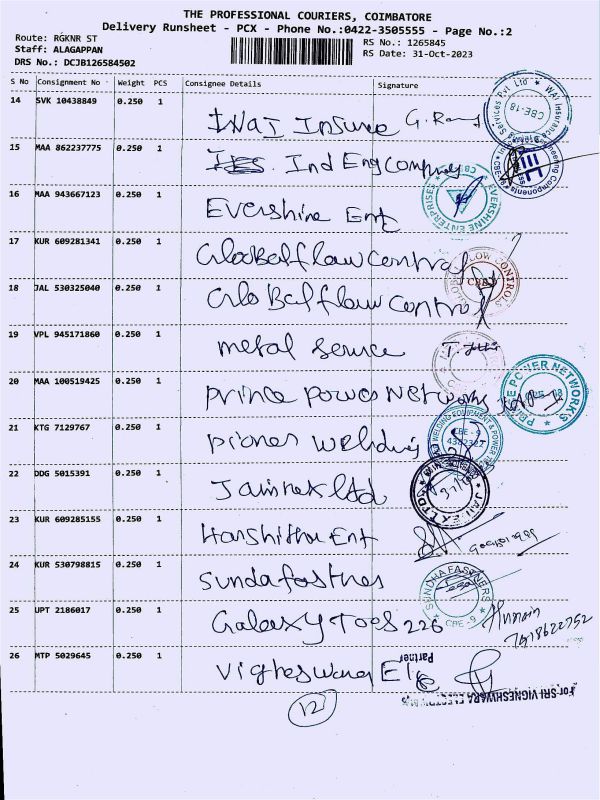 THE PROFESSIONAL COURIERS, COIMBATORE
Delivery Runsheet - PCX - Phone No.:0422-3505555 - Page No.:2
Route: RGKNR ST
RS No.: 1265845
Staff: ALAGAPPAN
RS Date: 31-Oct-2023
DRS No.: DCJB126584502
S No Consignment No Weight PCS Consignee Details Signature
14 SVK 10438849 0.250 1 IWAI Insure G. Ram
15 MAA 862237775 0.250 1 Ind Eng Company
16 MAA 943667123 0.250 1 Evershine Ent
17 KUR 609281341 0.250 1 GlobalflowControl
18 JAL 530325040 0.250 1 Glo Balflow Control
19 VPL 945171860 0.250 1 metal service
20 MAA 100519425 0.250 1 prince power Networks
21 KTG 7129767 0.250 1 pioner welding
22 DDG 5015391 0.250 1 Jainex ltd
23 KUR 609285155 0.250 1 Harshitha Ent
24 KUR 530798815 0.250 1 Sundafastnes
25 UPT 2186017 0.250 1 Galaxy Toos 226
26 MTP 5029645 0.250 1 Vigheswara Ele
Partner
For SRI VIGNESHWARA ELECTRICALS
12
CBE-18
EVERSHINE ENTERPRISES
WELDING EQUIPMENT & POWER
CBE - 9
4382327
SUNDHA FASTNERS
CBE - 9